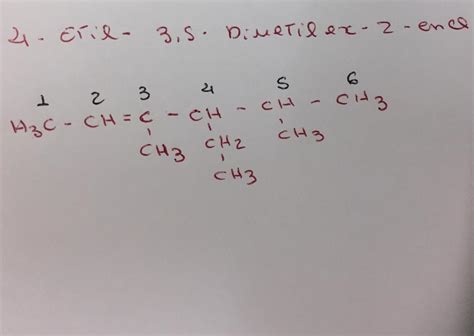 4-ETiL-3,5-DiMETiLex-2-eno
1 2 3 4 5 6
H3C-CH=C-CH-CH-CH3
CH3 CH2 CH3
CH3